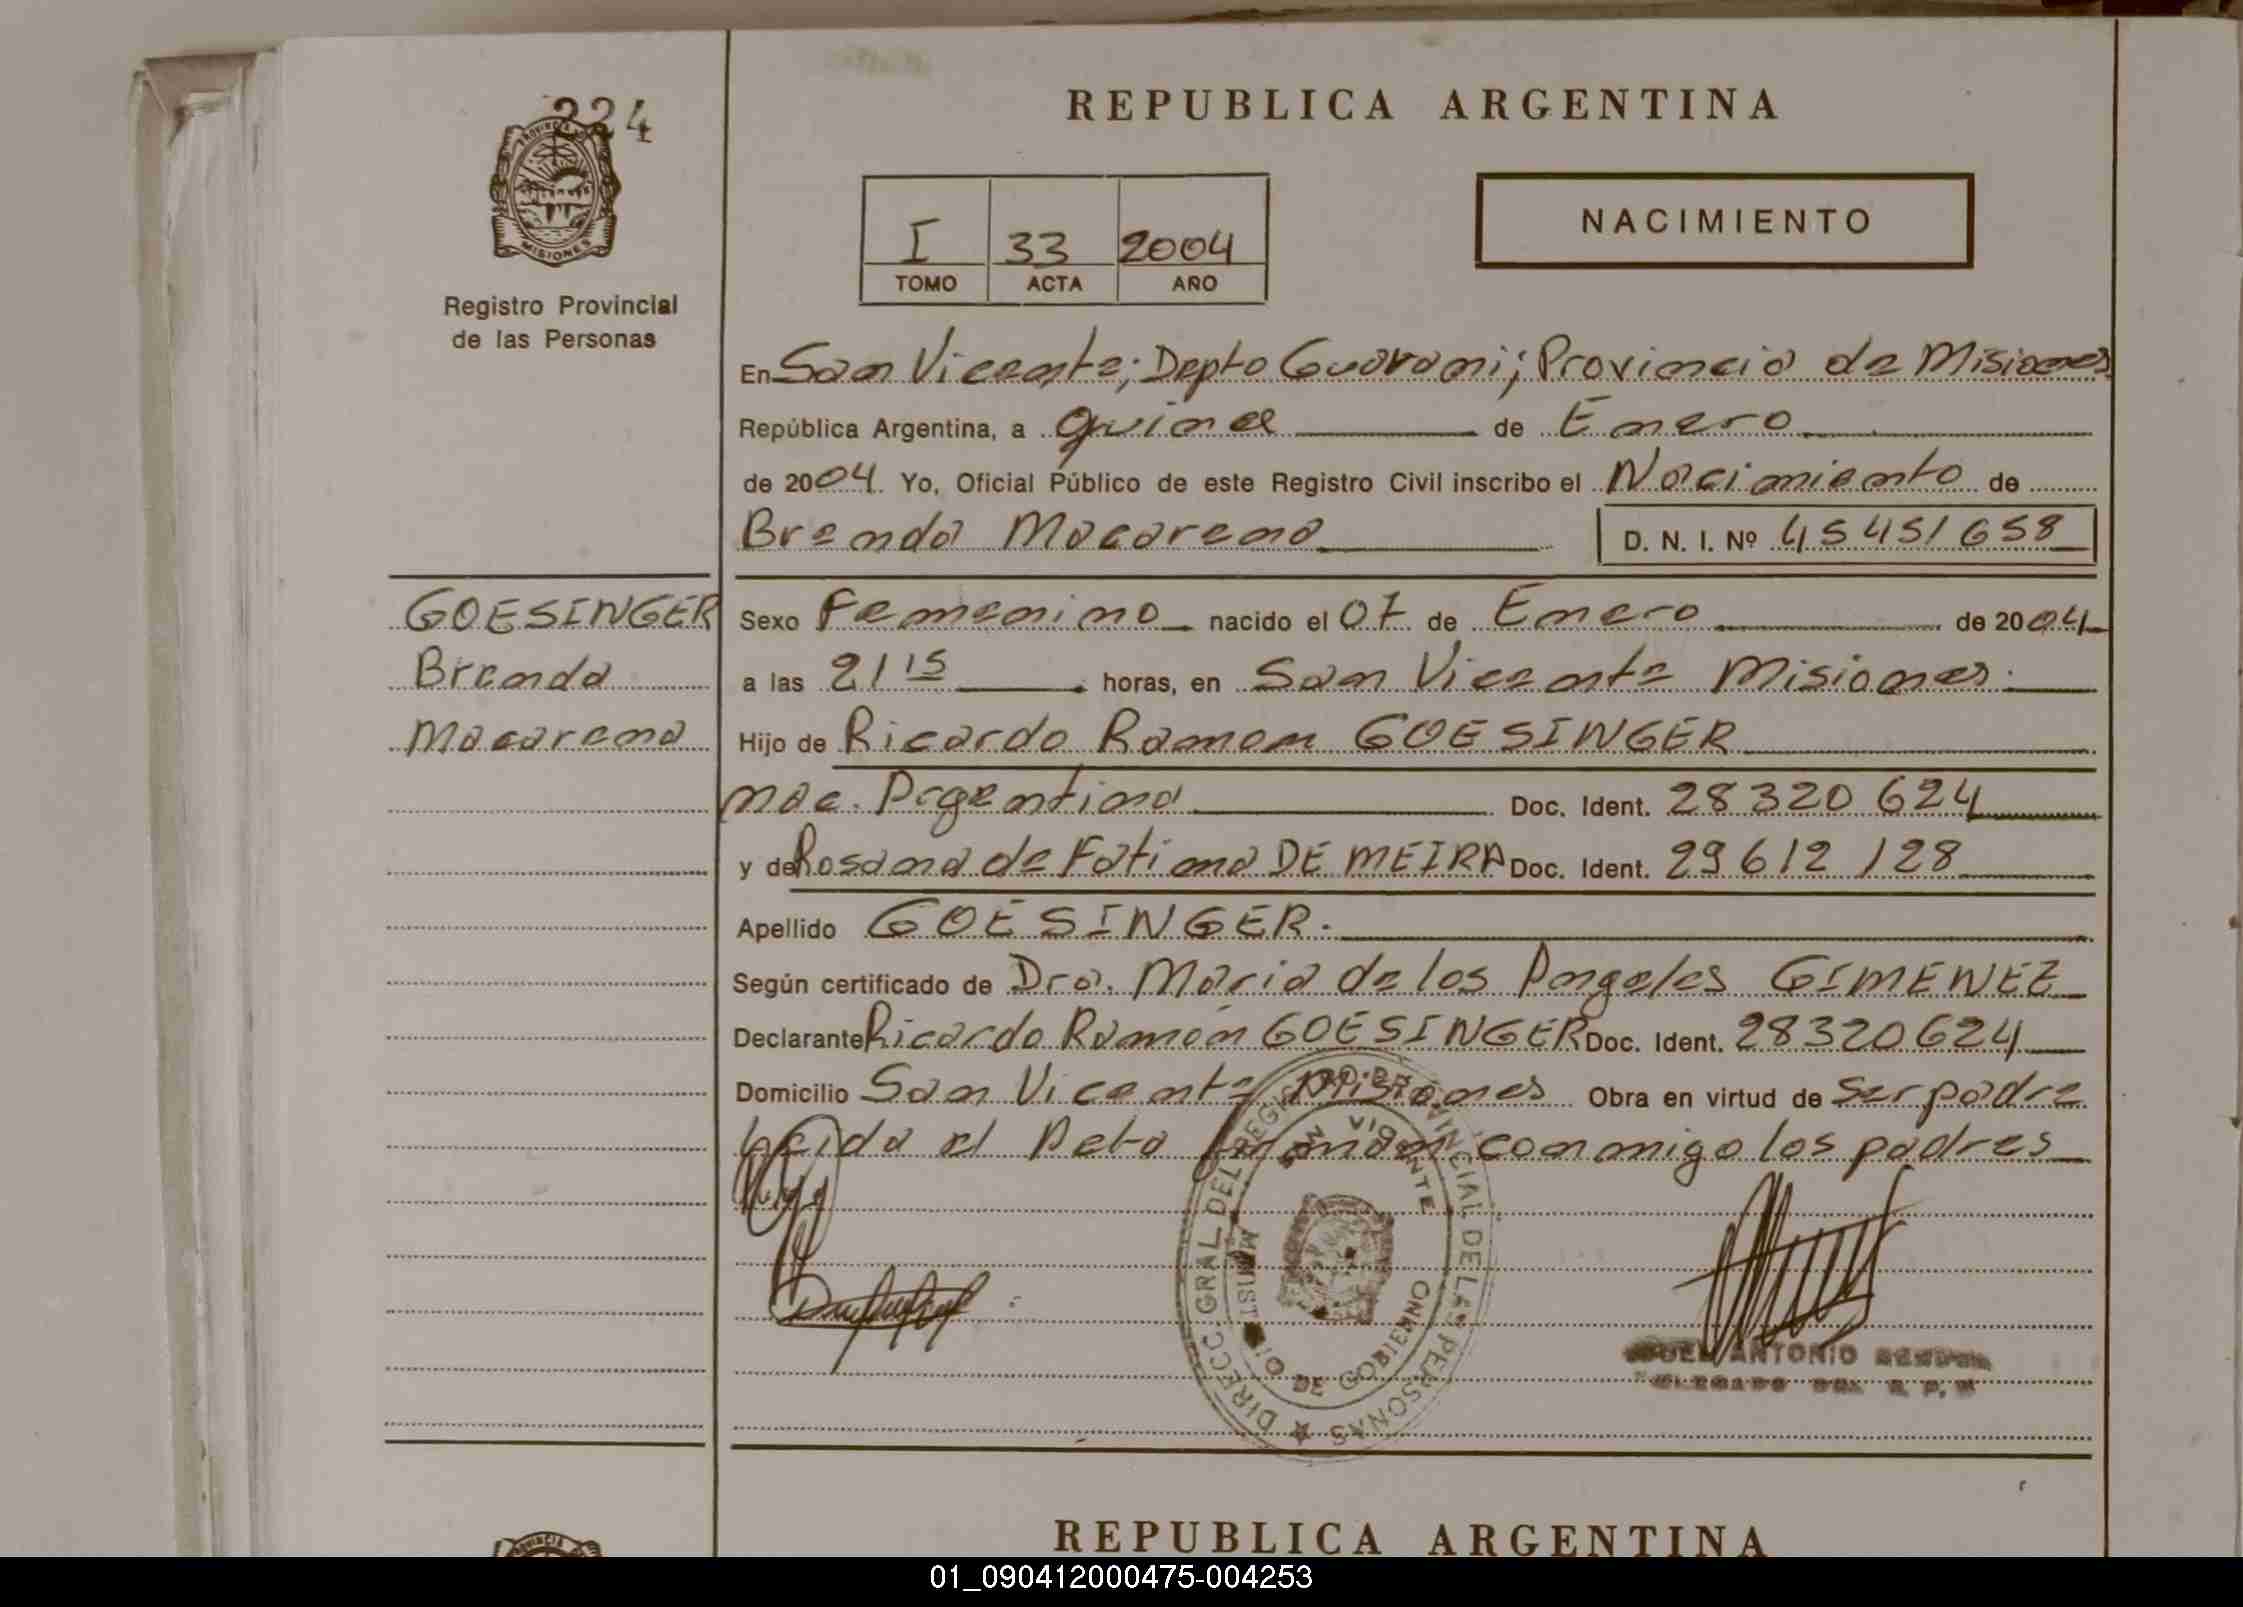 224
PROVINCIA
MISIONES
Registro Provincial
de las Personas
REPUBLICA ARGENTINA
I 33 2004
TOMO ACTA AÑO
NACIMIENTO
En San Vicente; Depto Guarani; Provincia de Misiones
República Argentina, a quince de Enero
de 2004. Yo, Oficial Público de este Registro Civil inscribo el Nacimiento de
Brenda Macarena D. N. I. Nº 45451658
GOESINGER
Brenda
Macarena
Sexo Femenino nacido el 07 de Enero de 2004
a las 21 15 horas, en San Vicente Misiones.
Hijo de Ricardo Ramon GOESINGER
nac. Argentina Doc. Ident. 28320624
y de Rosana de Fatima DE MEIRA Doc. Ident. 29612128
Apellido GOESINGER.
Según certificado de Dra. Maria de los Angeles GIMENEZ
Declarante Ricardo Ramón GOESINGER Doc. Ident. 28320624
Domicilio San Vicente Misiones Obra en virtud de ser padre
Leida el Acta firman conmigo los padres
DIRECC. GRAL. DEL REGISTRO PROVINCIAL DE LAS PERSONAS
SAN VICENTE
MINISTERIO DE GOBIERNO
ANTONIO
REPUBLICA ARGENTINA
01_090412000475-004253